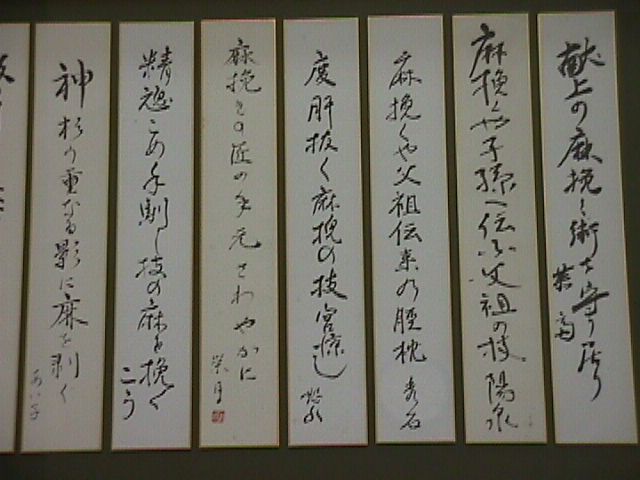 献上の麻挽く術を守り居り
麻挽くや子孫へ伝ふ父祖の技 陽泉
麻挽くや父祖伝来の腰枕 秀石
度肝抜く麻挽の技宮涼し
麻挽きの匠の手元さわやかに 栄月
精魂こめ手馴し技の麻を挽く こう
神杉の重なる影に麻を剥ぐ あい子